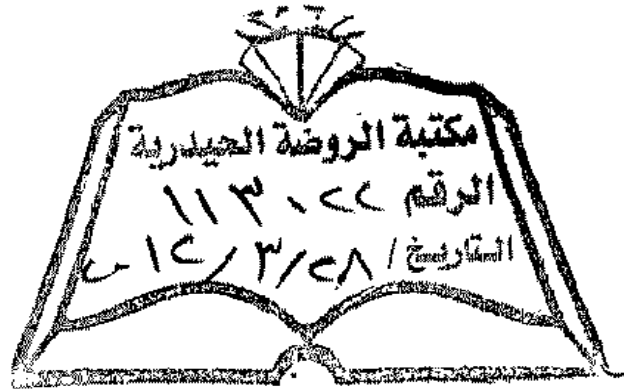 مكتبة الروضة الحيدرية
الرقم ١١٣٠٢٢
التاريخ / ٢٨/٣/١٢